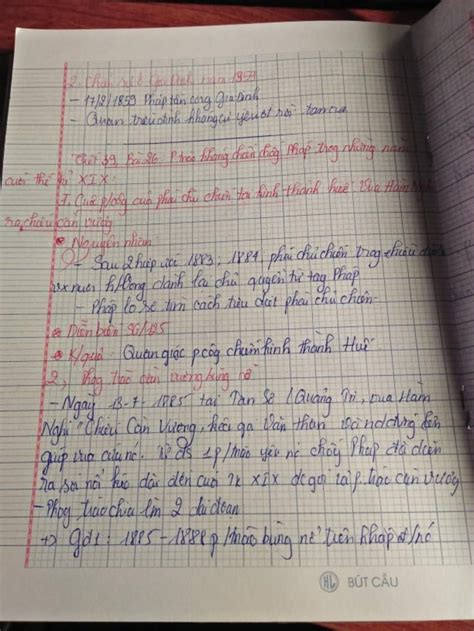 2. Chiến sự ở Gia Định năm 1859
- 17/2/1859 Pháp tấn công Gia Định
- Quân triều đình chống cự yếu ớt rồi tan rã
Tiết 39 Bài 26 P trào kháng chiến chống Pháp trong những năm
cuối thế kỉ XIX
1. Cuộc p/công của phái chủ chiến tại kinh thành huế. Vua Hàm Nghi
ra chiếu cần vương
Nguyên nhân
- Sau 2 hiệp ước 1883, 1884 phái chủ chiến trong triều đình
muốn giành lại chủ quyền từ tay Pháp
- Pháp lo sợ tìm cách tiêu diệt phái chủ chiến
Diễn biến SGK/125
K/quả: Quân giặc p.công chiếm kinh thành Huế
2, Phog trào cần vương bùng nổ
- Ngày 13-7-1885 tại Tân Sở (Quảng Trị, vua Hàm
Nghi "Chiếu Cần Vương, kêu gọi Văn thân
giúp vua cứu nc. 1 p/trào yêu nc chống Pháp đã diễn
ra sôi nổi kéo dài đến cuối TK XIX đc gọi là p.trào cần vương
- Phog trào chia làm 2 giai đoạn
+> Gđ1: 1885-1888 p/trào bùng nổ trên khắp
HL BÚT CẦU